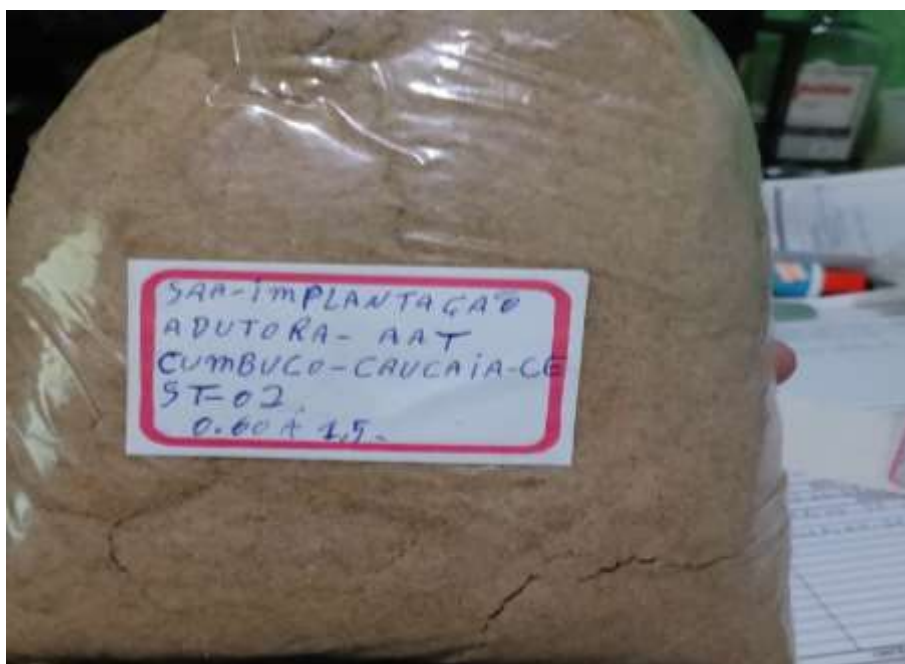 SAA-IMPLANTAÇÃO
ADUTORA- AAT
CUMBUCO-CAUCAIA-CE
ST-02
0.60 A 1,5